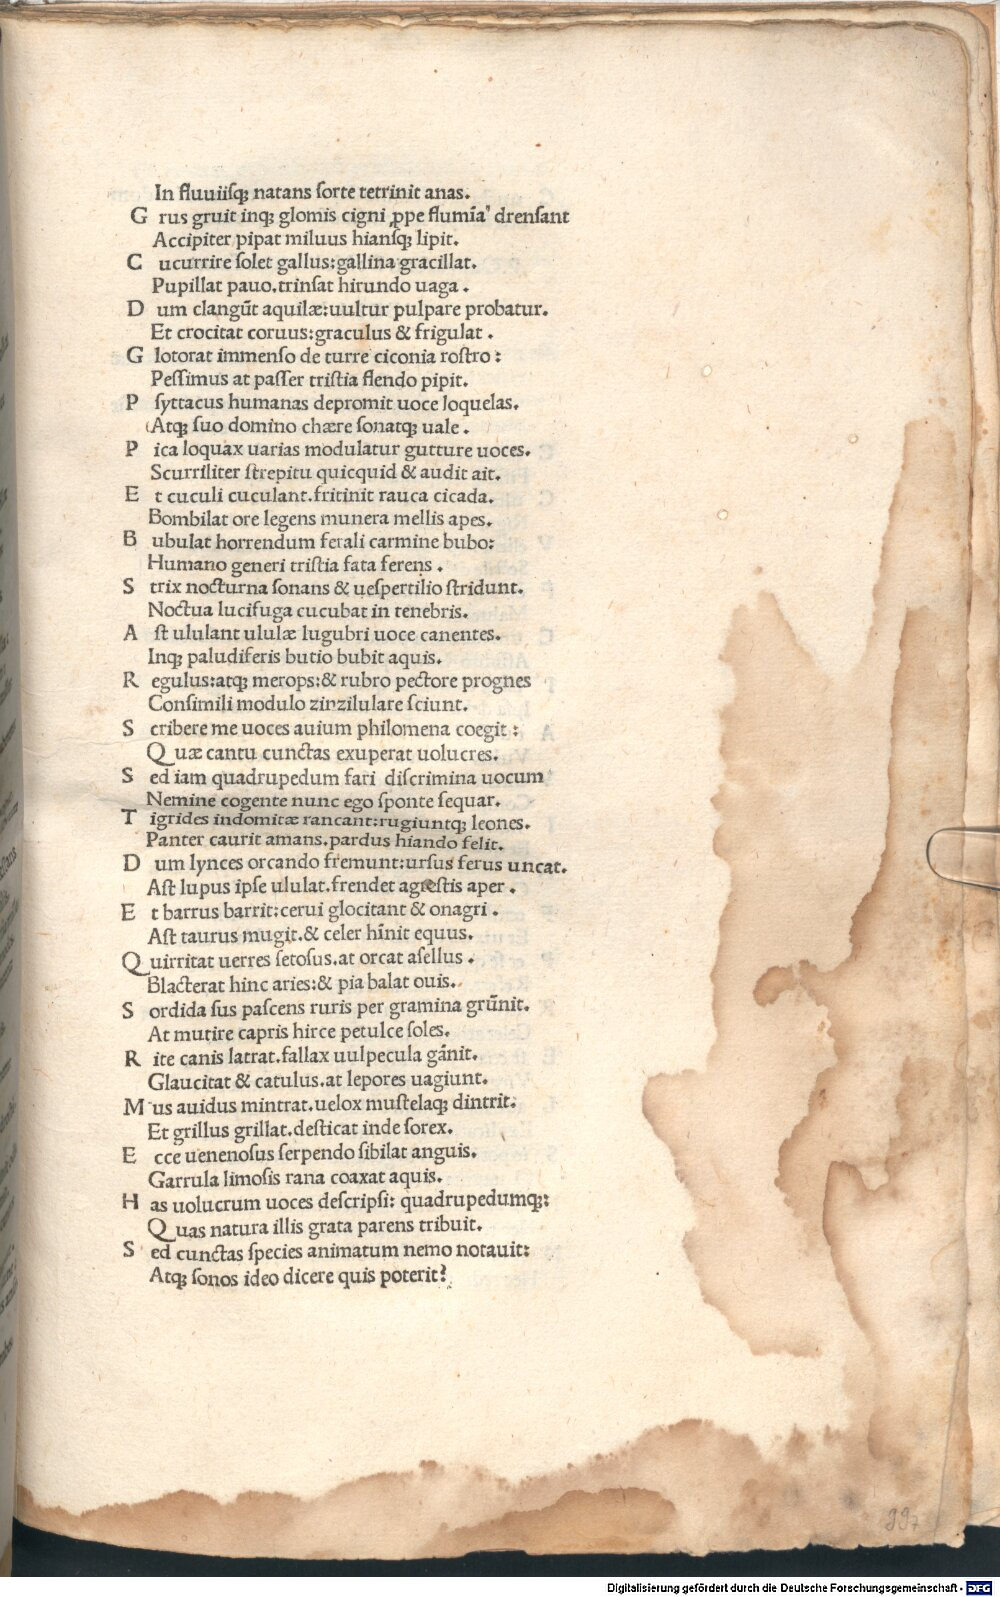 In fluuiisq; natans forte tetrinit anas.
G rus gruit inq; glomis cigni ꝓpe flumīa drensant
Accipiter pipat miluus hiansq; lipit.
C ucurrire solet gallus:gallina gracillat.
Pupillat pauo.trinsat hirundo uaga.
D um clangūt aquilæ:uultur pulpare probatur.
Et crocitat coruus:graculus & frigulat.
G lotorat immenso de turre ciconia rostro:
Pessimus at passer tristia flendo pipit.
P syttacus humanas depromit uoce loquelas.
Atq; suo domino chære sonatq; uale.
P ica loquax uarias modulatur gutture uoces.
Scurriliter strepitu quicquid & audit ait.
E t cuculi cuculant.fritinit rauca cicada.
Bombilat ore legens munera mellis apes.
B ubulat horrendum ferali carmine bubo:
Humano generi tristia fata ferens.
S trix nocturna sonans & uespertilio stridunt.
Noctua lucifuga cucubat in tenebris.
A st ululant ululæ lugubri uoce canentes.
Inq; paludiferis butio bubit aquis.
R egulus:atq; merops:& rubro pectore prognes
Consimili modulo zinzilulare sciunt.
S cribere me uoces auium philomena coegit:
Quæ cantu cunctas exuperat uolucres.
S ed iam quadrupedum fari discrimina uocum
Nemine cogente nunc ego sponte sequar.
T igrides indomitæ rancant:rugiuntq; leones.
Panter caurit amans.pardus hiando felit.
D um lynces orcando fremunt:ursus ferus uncat.
Ast lupus ipse ululat.frendet agrestis aper.
E t barrus barrit:cerui glocitant & onagri.
Ast taurus mugit.& celer hīnit equus.
Q uirritat uerres setosus.at orcat asellus.
Blacterat hinc aries:& pia balat ouis.
S ordida sus pascens ruris per gramina grūnit.
At mutire capris hirce petulce soles.
R ite canis latrat.fallax uulpecula gānit.
Glaucitat & catulus.at lepores uagiunt.
M us auidus mintrat.uelox mustelaq; dintrit.
Et grillus grillat.desticat inde sorex.
E cce uenenosus serpendo sibilat anguis.
Garrula limosis rana coaxat aquis.
H as uolucrum uoces descripsi: quadrupedumq;:
Quas natura illis grata parens tribuit.
S ed cunctas species animatum nemo notauit:
Atq; sonos ideo dicere quis poterit?
Digitalisierung gefördert durch die Deutsche Forschungsgemeinschaft - DFG